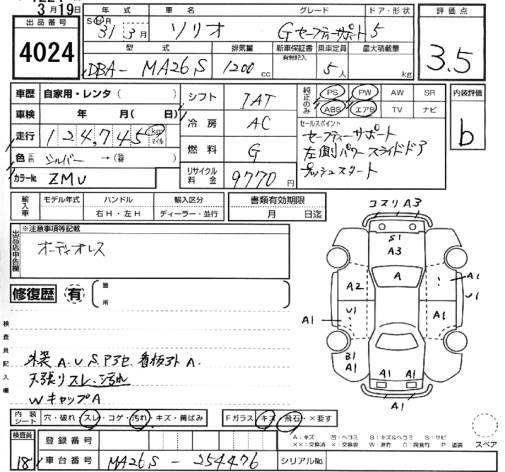 3月19日
出品番号
4024
年式
車名
グレード
ドア・形状
評価点
31 3月
ソリオ
Gセーフティーサポート
5
3.5
型式
排気量
新車保証書
有無記入
乗車定員
最大積載量
DBA- MA26S
1200cc
5人
kg
車歴
自家用・レンタ( )
車検
年 月( 日)
走行
124,745
km
マイル
色
シルバー
カラーNo.
ZMU
シフト
7AT
冷房
AC
燃料
G
リサイクル料金
9770円
純正のみ
PS PW AW SR
ABS エアB TV ナビ
セールスポイント
セーフティーサポート
左側パワースライドドア
プッシュスタート
内装評価
b
輸入車
モデル年式
ハンドル
右H・左H
輸入区分
ディーラー・並行
書類有効期限
月 日迄
出品店申告欄
※注意事項等記載
オーディオレス
修復歴
有
箇所
検査員記入欄
外装A.U.S
看板跡A.
天張りスレ、汚れ
WキャップA
コスリA3
S1
A3
A
A2
A1
U1
U1
A1
A1
B1
A1
A1
A1
内装シート
穴・破れ・スレ・コゲ・汚れ・キズ・黄ばみ
Fガラス
キズ・飛石・×要す
スペア
検査員
181
登録番号
車台番号
MA26S-254476
シリアルNo.